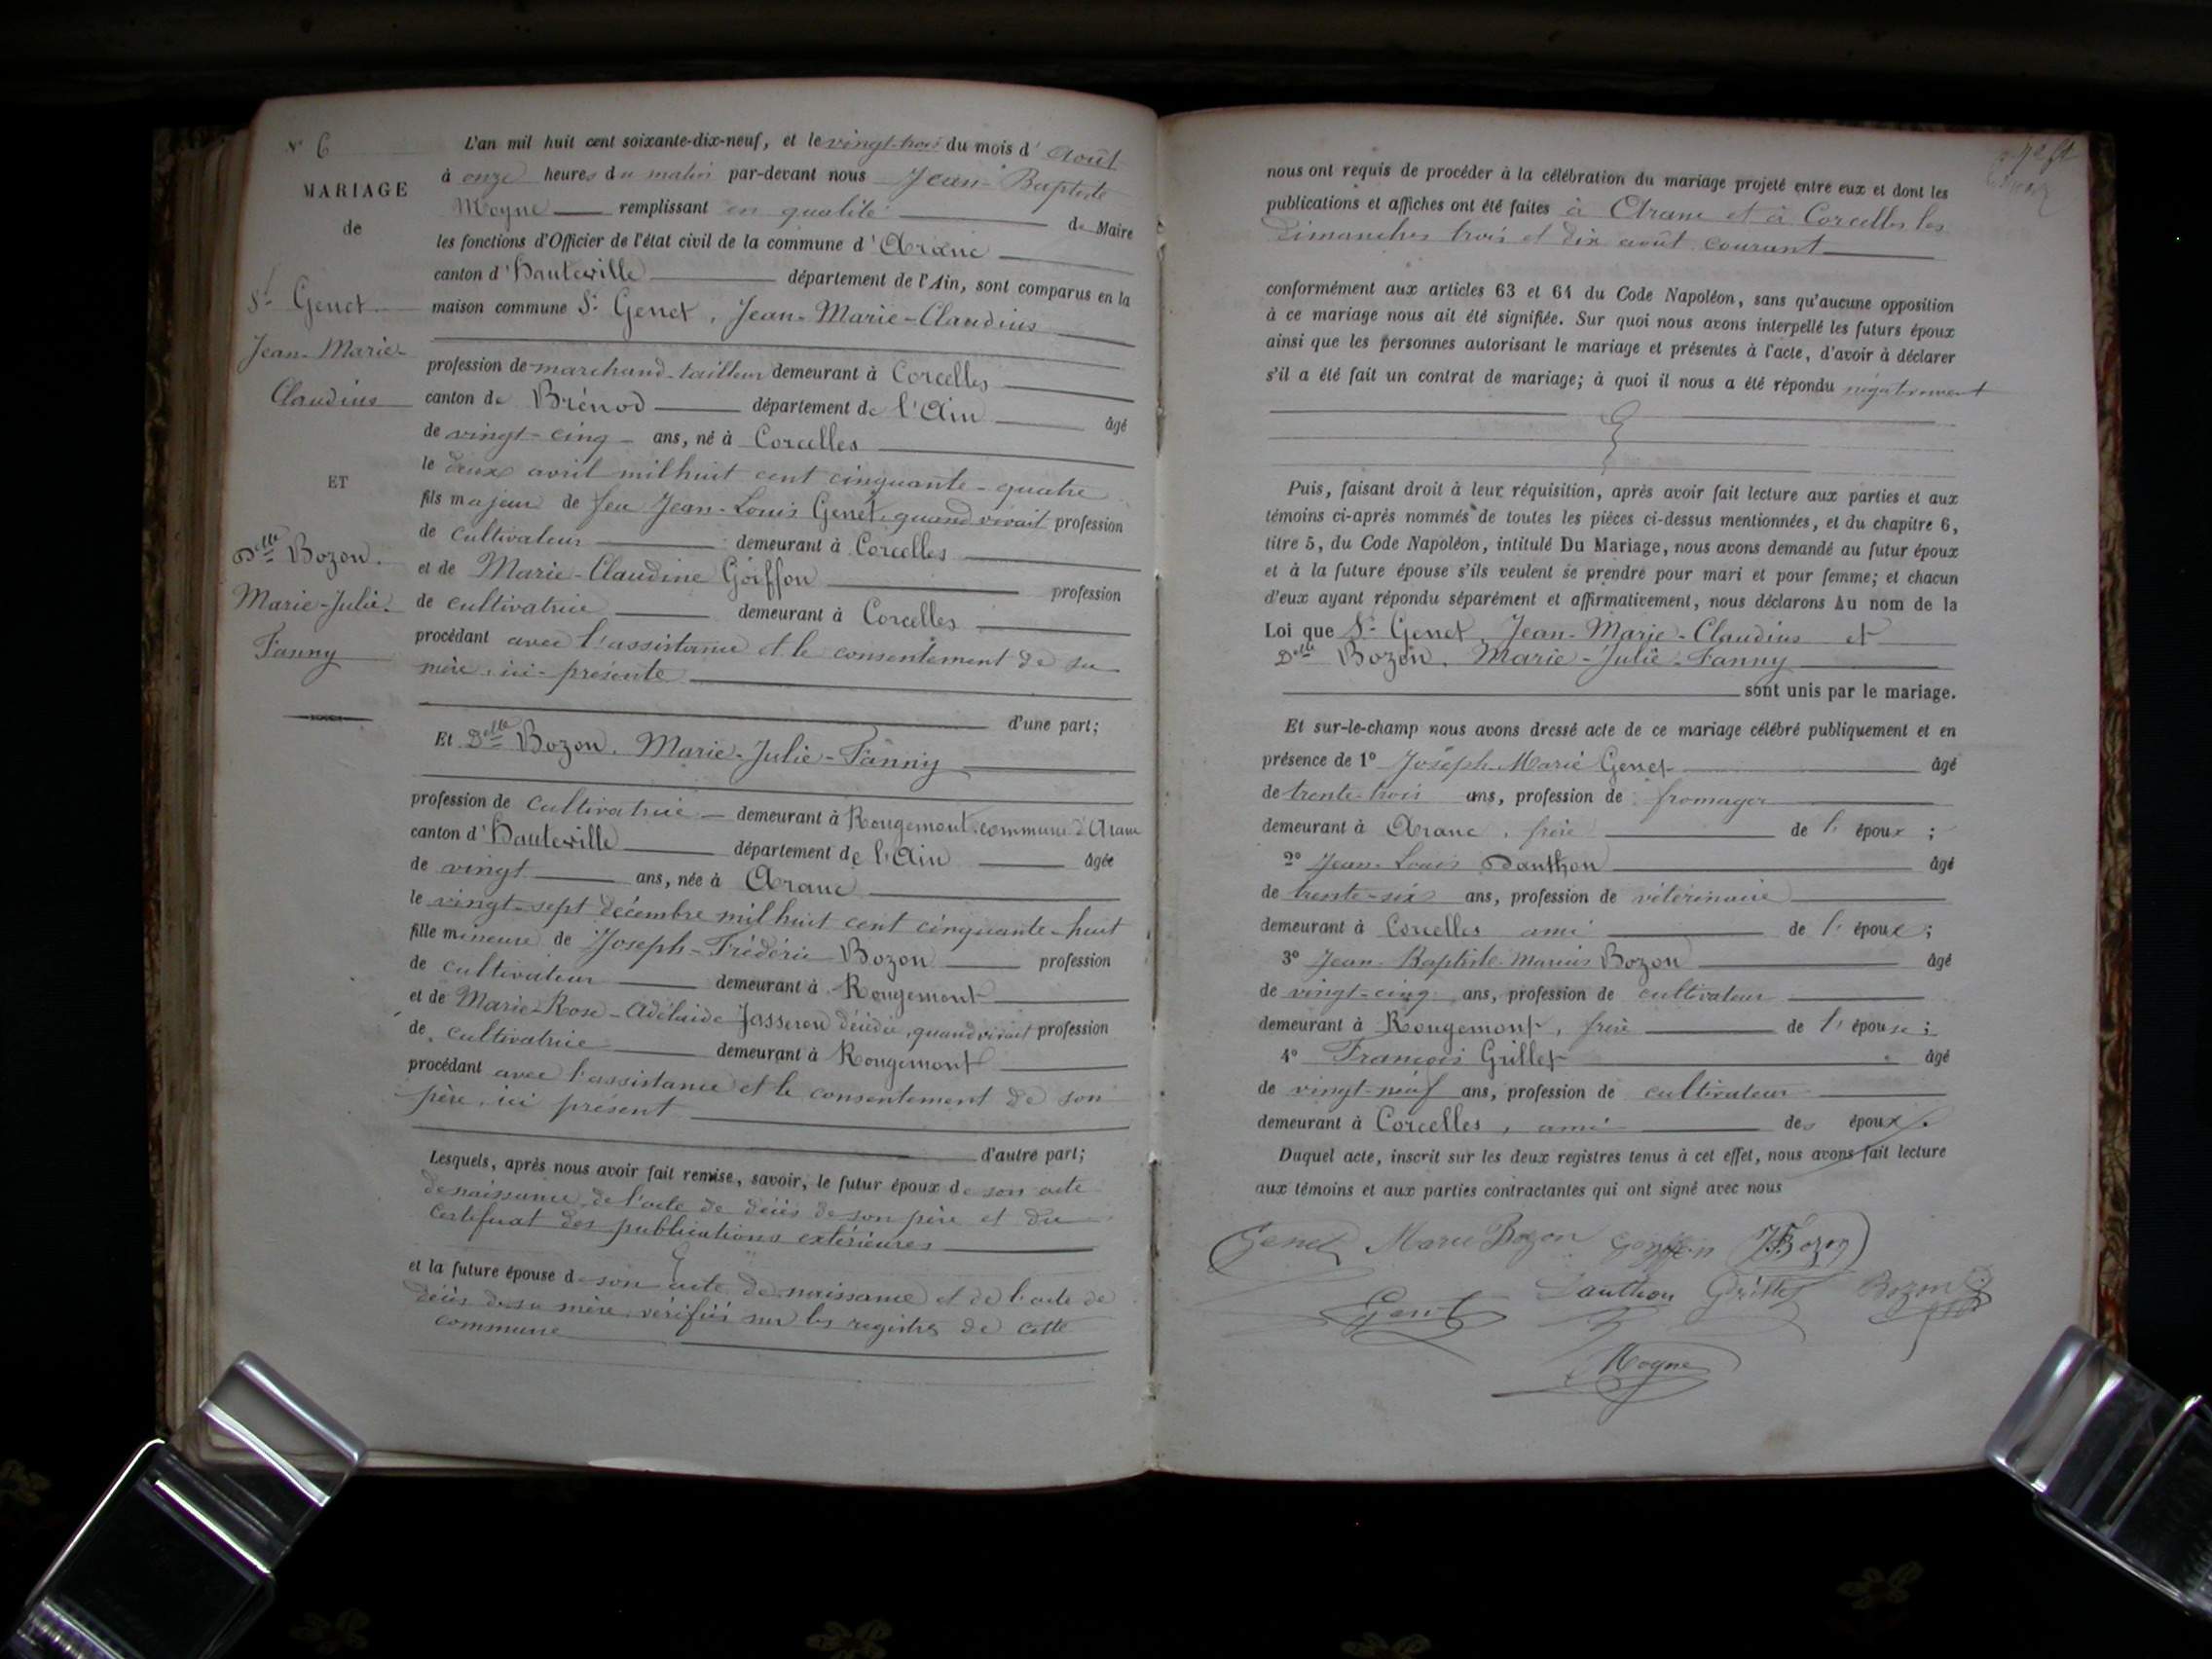 N° 6
MARIAGE
de
Sr Genet
Jean-Marie-
Claudius
ET
Delle Bozon.
Marie-Julie.
Fanny
L'an mil huit cent soixante-dix-neuf, et le vingt-trois du mois d'Août
à onze heures du matin par-devant nous Jean-Baptiste
Moyne remplissant en qualité de Maire
les fonctions d'Officier de l'état civil de la commune d'Aranc
canton d'Hauteville département de l'Ain, sont comparus en la
maison commune Sr Genet, Jean-Marie-Claudius
profession de marchand-tailleur demeurant à Corcelles
canton de Brénod département de l'Ain âgé
de vingt-cinq ans, né à Corcelles
le deux avril mil huit cent cinquante-quatre
fils majeur de feu Jean-Louis Genet, quand vivait profession
de cultivateur demeurant à Corcelles
et de Marie-Claudine Goiffon profession
de cultivatrice demeurant à Corcelles
procédant avec l'assistance et le consentement de sa
mère, ici présente
d'une part;
Et Delle Bozon. Marie-Julie-Fanny
profession de cultivatrice demeurant à Rougemont, commune d'Aranc
canton d'Hauteville département de l'Ain âgée
de vingt ans, née à Aranc
le vingt-sept décembre mil huit cent cinquante-huit
fille mineure de Joseph-Frédéric Bozon profession
de cultivateur demeurant à Rougemont
et de Marie-Rose-Adélaïde Josseron décédée, quand vivait profession
de cultivatrice demeurant à Rougemont
procédant avec l'assistance et le consentement de son
père, ici présent
d'autre part;
Lesquels, après nous avoir fait remise, savoir, le futur époux de son acte
de naissance, de l'acte de décès de son père et du
certificat des publications extérieures
et la future épouse de son acte de naissance et de l'acte de
décès de sa mère, vérifiés sur les registres de cette
commune
nous ont requis de procéder à la célébration du mariage projeté entre eux et dont les
publications et affiches ont été faites à Aranc et à Corcelles les
dimanches trois et dix août courant
conformément aux articles 63 et 64 du Code Napoléon, sans qu'aucune opposition
à ce mariage nous ait été signifiée. Sur quoi nous avons interpellé les futurs époux
ainsi que les personnes autorisant le mariage et présentes à l'acte, d'avoir à déclarer
s'il a été fait un contrat de mariage; à quoi il nous a été répondu négativement
Puis, faisant droit à leur réquisition, après avoir fait lecture aux parties et aux
témoins ci-après nommés de toutes les pièces ci-dessus mentionnées, et du chapitre 6,
titre 5, du Code Napoléon, intitulé Du Mariage, nous avons demandé au futur époux
et à la future épouse s'ils veulent se prendre pour mari et pour femme; et chacun
d'eux ayant répondu séparément et affirmativement, nous déclarons Au nom de la
Loi que Sr Genet, Jean-Marie-Claudius et
Delle Bozon. Marie-Julie-Fanny
sont unis par le mariage.
Et sur-le-champ nous avons dressé acte de ce mariage célébré publiquement et en
présence de 1° Joseph-Marie Genet âgé
de trente-trois ans, profession de fromager
demeurant à Aranc, frère de l'époux;
2° Jean-Louis Danthon âgé
de trente-six ans, profession de vétérinaire
demeurant à Corcelles ami de l'époux;
3° Jean-Baptiste-Marius Bozon âgé
de vingt-cinq ans, profession de cultivateur
demeurant à Rougemont, frère de l'épouse;
4° François Grillet âgé
de vingt-neuf ans, profession de cultivateur
demeurant à Corcelles, ami des époux.
Duquel acte, inscrit sur les deux registres tenus à cet effet, nous avons fait lecture
aux témoins et aux parties contractantes qui ont signé avec nous
Genet Marie Bozon Goiffon JF Bozon
Genet Danthon Grillet Bozon
Moyne